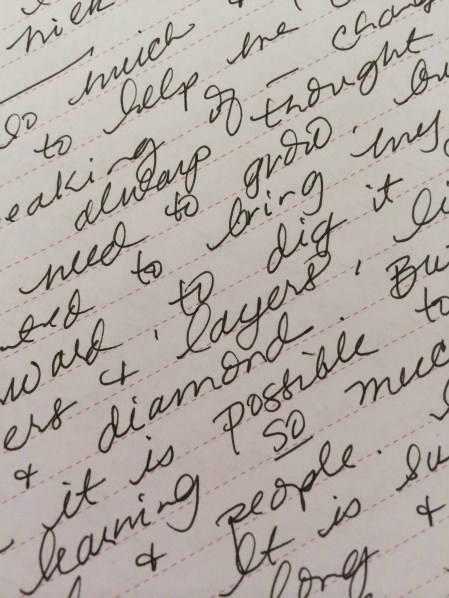 so much
to help me
eaking of thought
always
need to grow.
ted to bring my
ward, to dig it
ers & layers, li
& diamond. Bu
it is possible to
learning so muc
& people.
It is su
long &